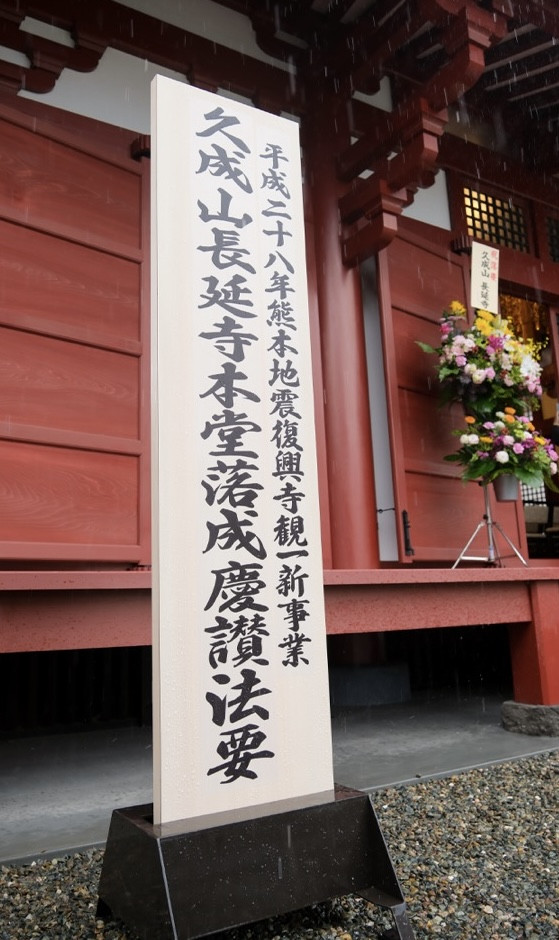 平成二十八年熊本地震復興寺観一新事業
久成山長延寺本堂落成慶讃法要
久成山 長延寺